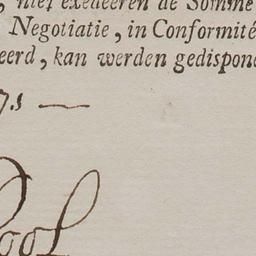 , niet exedeeren de Somme
Negotiatie, in Conformité
eerd, kan werden gedispone
7.s —